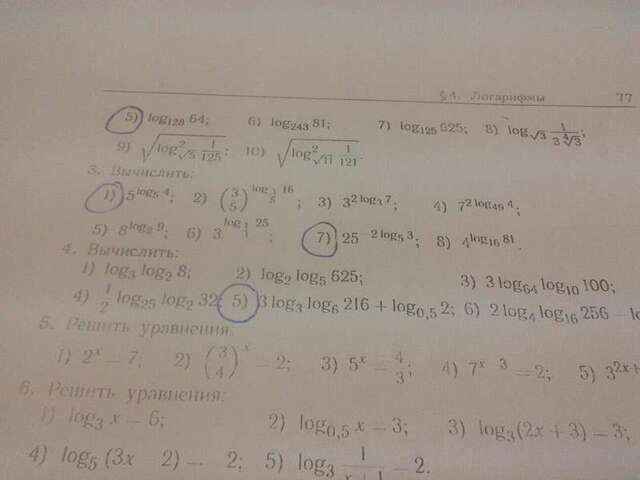 §4. Логарифмы 77
5) log₁₂₈ 64; 6) log₂₄₃ 81; 7) log₁₂₅ 625; 8) log_√3 1/(3 ∜3);
9) √(log²_√5 1/125); 10) √(log²_√11 1/121).
3. Вычислить:
1) 5^(log₅ 4); 2) (3/5)^(log 16); 3) 3^(2 log₃ 7); 4) 7^(2 log₄₉ 4);
5) 8^(log₂ 9); 6) 3^(log 25); 7) 25^(2 log₅ 3); 8) 4^(log₁₆ 81).
4. Вычислить:
1) log₃ log₂ 8; 2) log₂ log₅ 625; 3) 3 log₆₄ log₁₀ 100;
4) 1/2 log₂₅ log₂ 32; 5) 3 log₃ log₆ 216 + log₀,₅ 2; 6) 2 log₄ log₁₆ 256 −
5. Решить уравнения:
1) 2ˣ = 7; 2) (3/4)ˣ = 2; 3) 5ˣ = 4/3; 4) 7ˣ ³ = 2; 5) 3^(2x+
6. Решить уравнения:
1) log₃ x = 6; 2) log₀,₅ x = 3; 3) log₃(2x + 3) = 3;
4) log₅ (3x − 2) = 2; 5) log₃ 1/(x+1) = 2.